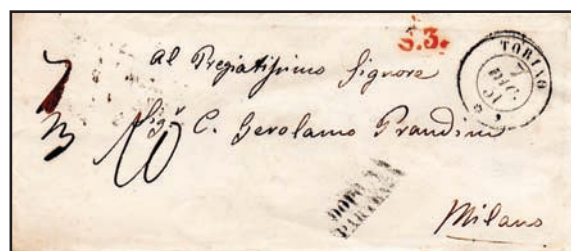 S.3.
TORINO
7
DIC.
51
Al Pregiatissimo Signore
Sigr C. Gerolamo Prandini
10
DOPO LA
PARTENZA
Milano